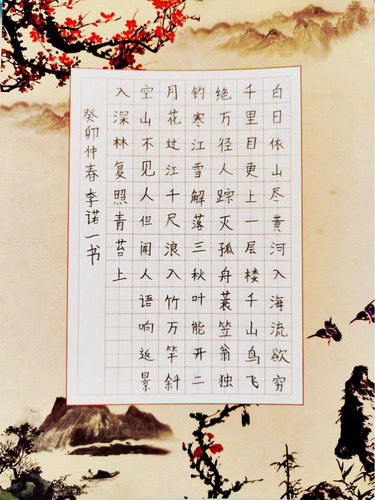 白日依山尽黄河入海流欲穷
千里目更上一层楼千山鸟飞
绝万径人踪灭孤舟蓑笠翁独
钓寒江雪解落三秋叶能开二
月花过江千尺浪入竹万竿斜
空山不见人但闻人语响返景
入深林复照青苔上
癸卯仲春李诺一书